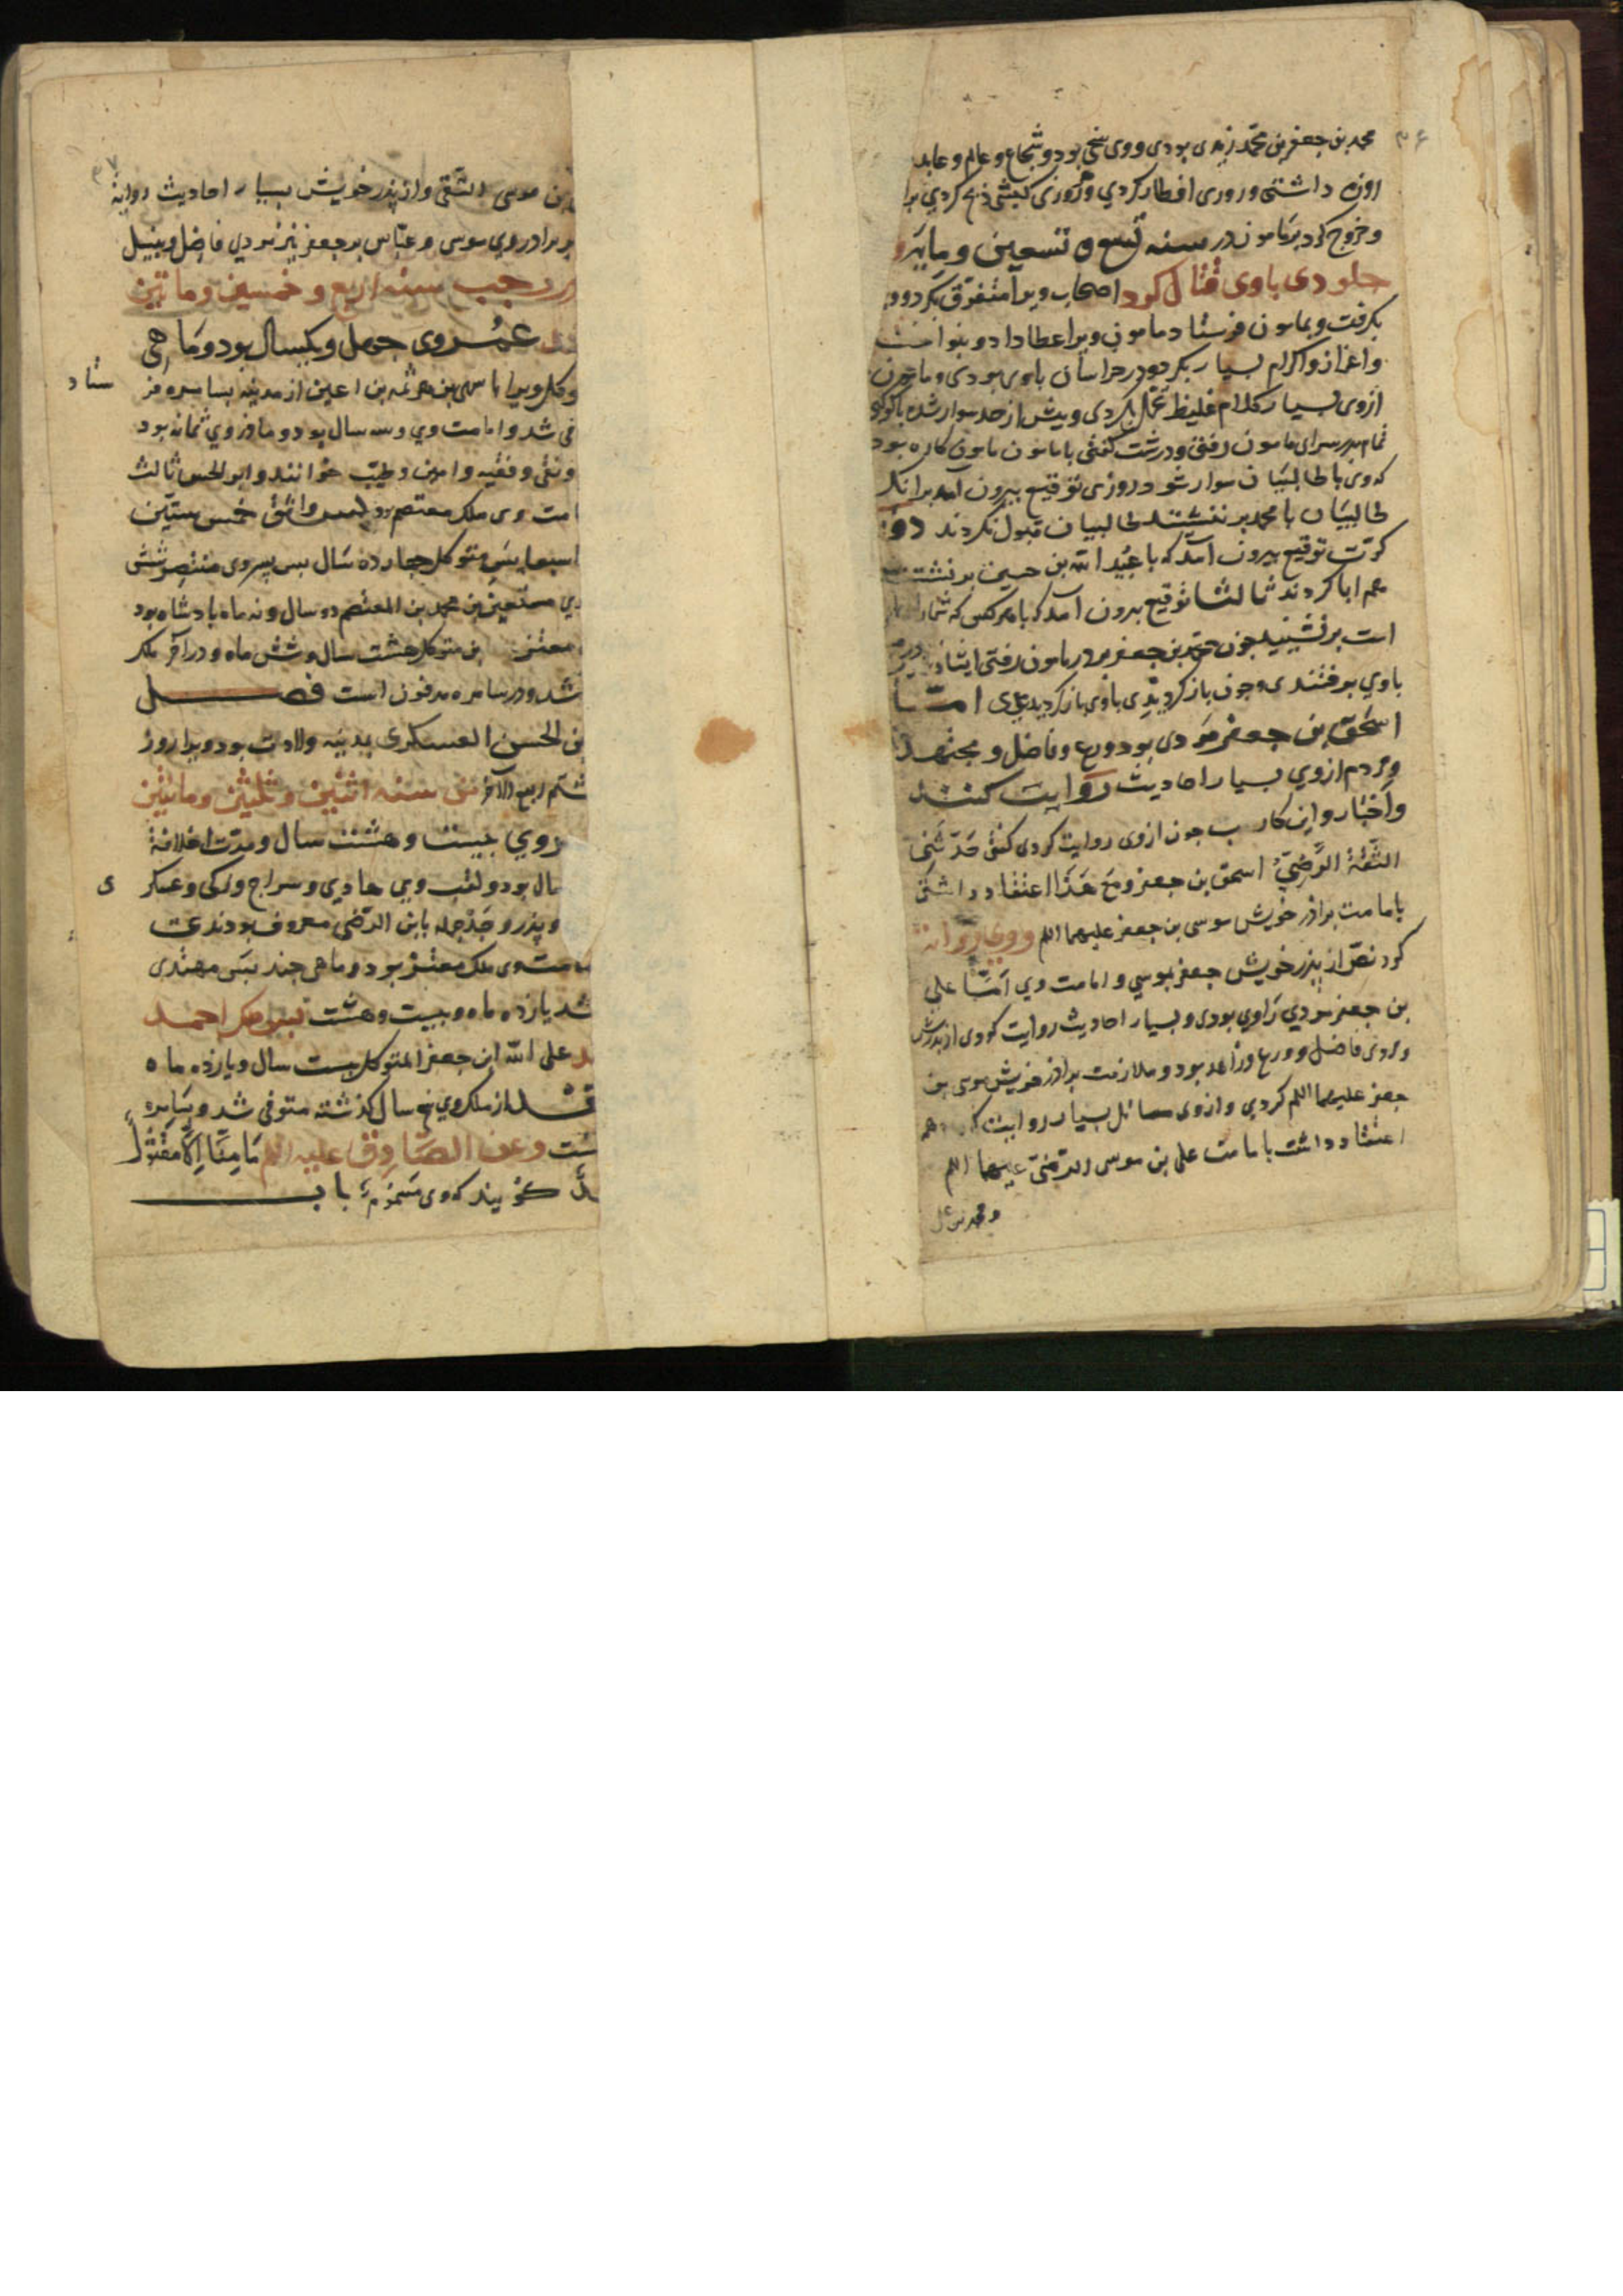 ۳۶
محمد بن جعفر بن محمد زیدی بودی و وی سخی بود و شجاع و عالم و عابد
روزه داشتی و روزی افطار کردي و هر روزی کبشی ذبح کردي برا
و خروج کرد بر مامون در سنه تسع و تسعین و مایه و
جلودی باوی قتال کرد اصحاب ویرا متفرق بکرد وو
بکرفت و بمامون فرستاد مامون ویرا عطا داد و بنواخت
و اعزاز و اکرام بسیار بکرد و در خراسان باوی بودی و مامون
ازوی بسیار کلام غلیظ تحمل کردی و بیش از حد سوار شده باکوکبه
تمام بدر سرای مامون رفتی و درشت کفتی با مامون مامون کاره بود
که وی با طالبیان سوار شود روزی توقیع بیرون آمد برانک
طالبیان با محمد بر ننشینند طالبیان قبول نکردند دو
کرت توقیع بیرون آمد که با عبید الله بن حسین بر نشینند
هم ابا کردند ثالثا توقیع بیرون آمد که با هر کس که شمارا
است بر نشینید جون محمد بن جعفر بدر مامون رفتی ایشان
باوي برفتندی و جون باز کردیدی باوی باز کردیدندی امّا
اسحق بن جعفر مردی بود ورع و فاضل و مجتهد
و مردم ازوي بسیار احادیث روایت کنند
و اخبار و ابن کاسب جون ازوی روایت کردی کفتی حدثني
الثقة الرضي اسحق بن جعفر و مع هذا اعتقاد داشتی
بامامت براذر خویش موسی بن جعفر علیهما السلم و وی روایت
کرد نصّ از پذر خویش جعفر بموسي و امامت وي امّا علي
بن جعفر مردي راوي بودی و بسیار احادیث روایت کردی از پدرش
و مردی فاضل و ورع و زاهد بود و ملازمت براذر خویش موسی بن
جعفر علیهما السلم کردي و ازوی مسائل بسیار روایت کرد و هم
اعتقاد داشت بامامت علی بن موسی الرضی علیهما السلم
و محمد بن علی
۳۷
بن موسی التقی و از پذر خویش بسیار احادیث روایة
برادر وي موسی و عباس بن جعفر نیز مردي فاضل و نبیل
در رجب سنه اربع و خمسین و ماتین
عمر وی جهل و یکسال بود و ماهی
متوکل ویرا با یحیی بن هرثمه بن اعین از مدینه بسامره فر
ستاد
فی شد و امامت وي و سه سال بود و مادر وي سمانه بود
و نقي و فقیه و امین و طیب خوانند و ابو الحسن ثالث
امت وی ملک معتصم بود پس واثق خمس ستین
سبعا پس متوکل جهارده سال پس پسر وی منتصر شش
پس مستعین بن محمد بن المعتصم دو سال و نه ماه پادشاه بود
معتز بن متوکل هشت سال و شش ماه و در آخر ملک
شد و در سامره مدفون است فصـــــل
بن الحسن العسکری بمدینه ولادت بود ویرا روز
هشتم ربیع الآخر فی سنه اثنین و ثلثین و ماتین
عمر وي بیست و هشت سال و مدت خلافة
سال بود و لقب وي هادي و سراج و زکی و عسکر
ی
و پذر و جذ جمله بابن الرّضی معروف بودند
امت وی ملک معتز بود و ماهی جند پس مهتدی
شد یازده ماه و بیست و هشت پس ملک احمد
علی الله ابن جعفر المتوکل بیست سال و یازده ماه
از ملک وي پنج سال کذشته متوفی شد و بسامره
است و عن الصّادق علیه السلم ما منّا الّا مقتول
کویند که وی مسموم باب